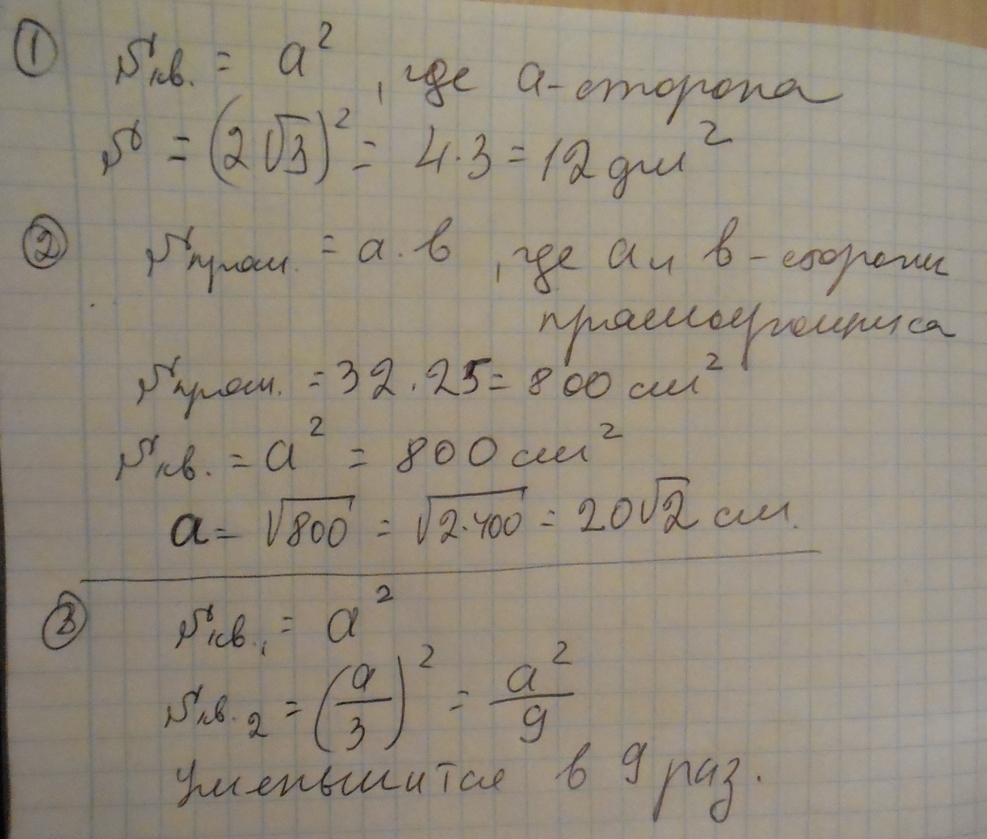 ① Sкв. = a², где a - сторона
S = (2√3)² = 4·3 = 12 дм²
② Sпрям. = a · в, где a и в - стороны
прямоугольника
Sпрям. = 32 · 25 = 800 см²
Sкв. = a² = 800 см²
a = √800 = √2·400 = 20√2 см.
③ Sкв.₁ = a²
Sкв.₂ = (a/3)² = a²/9
Уменьшится в 9 раз.